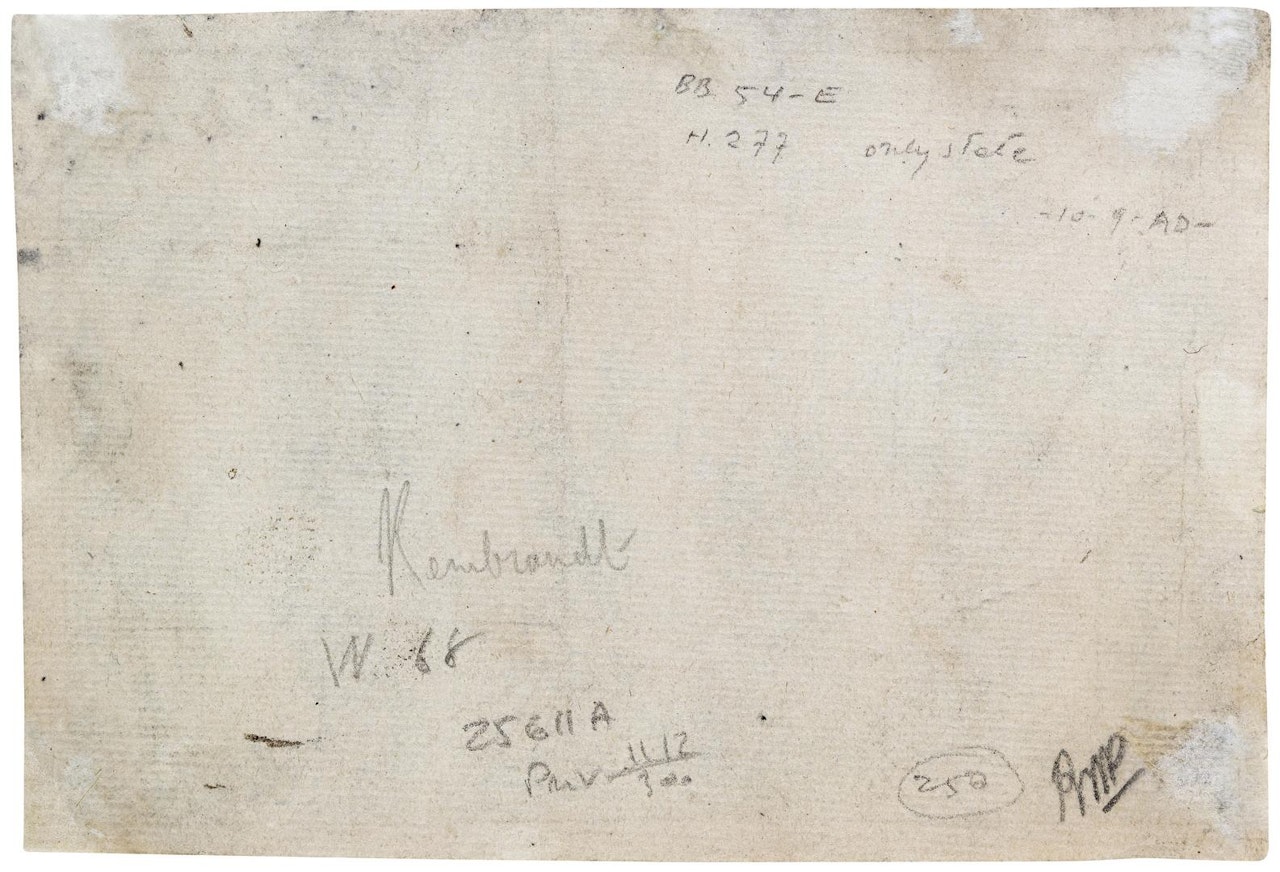 BB. 54-E
H. 277 only state
-10-9-AD-
Rembrandt
W. 68
25611A
11 12
300
250